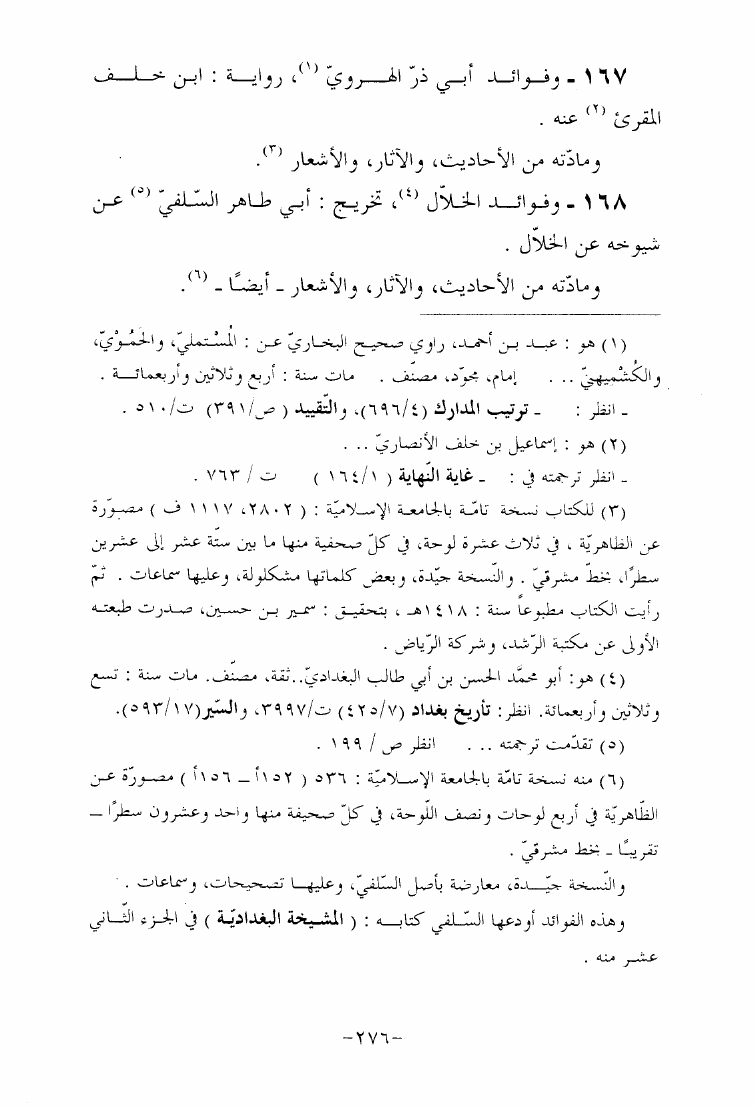 ١٦٧ - وفوائد أبي ذرّ الهرويّ (١)، رواية : ابن خلف
المقرئ (٢) عنه .
ومادّته من الأحاديث، والآثار، والأشعار (٣).
١٦٨ - وفوائد الخلاّل (٤)، تخريج : أبي طاهر السّلفيّ (٥) عن
شيوخه عن الخلاّل .
ومادّته من الأحاديث، والآثار، والأشعار - أيضًا - (٦).
(١) هو : عبد بن أحمد، راوي صحيح البخاريّ عن : المُسْتمليّ، والحَمُّوْيّ،
والكُشْمِيهنيّ ... . إمام، مجوّد، مصنّف . مات سنة : أربع وثلاثين وأربعمائة .
- انظر : - ترتيب المدارك (٦٩٦/٤)، والتّقييد ( ص/٣٩١) ت/٥١٠ .
(٢) هو : إسماعيل بن خلف الأنصاريّ ... .
- انظر ترجمته في : - غاية النّهاية ( ١٦٤/١ ) ت / ٧٦٣ .
(٣) للكتاب نسخة تامّة بالجامعة الإسلاميّة : ( ٢٨٠٢، ١١١٧ ف ) مصوّرة
عن الظاهريّة ، في ثلاث عشرة لوحة، في كلّ صحفية منها ما بين ستّة عشر إلى عشرين
سطرًا، بخطّ مشرقيّ . والنّسخة جيّدة، وبعض كلماتها مشكلولة، وعليها سماعات . ثمّ
رأيت الكتاب مطبوعاً سنة : ١٤١٨هـ ، بتحقيق : سمير بن حسين، صدرت طبعته
الأولى عن مكتبة الرّشد، وشركة الرّياض .
(٤) هو: أبو محمَّد الحسن بن أبي طالب البغداديّ..ثقة، مصنّف. مات سنة : تسع
وثلاثين وأربعمائة. انظر: تأريخ بغداد (٤٢٥/٧) ت/٣٩٩٧، والسّير(٥٩٣/١٧).
(٥) تقدّمت ترجمته ... . انظر ص/ ١٩٩ .
(٦) منه نسخة تامّة بالجامعة الإسلاميّة : ٥٣٦ ( ١٥٢أ – ١٥٦أ ) مصورّة عن
الظاهريّة في أربع لوحات ونصف اللّوحة، في كلّ صحيفة منها واحد وعشرون سطرًا –
تقريبًا - بخط مشرقيّ .
والنّسخة جيّدة، معارضة بأصل السّلفيّ، وعليها تصحيحات، وسماعات .
وهذه الفوائد أودعها السّلفي كتابه : ( المشيخة البغداديّة ) في الجزء الثّاني
عشر منه .
-٢٧٦-